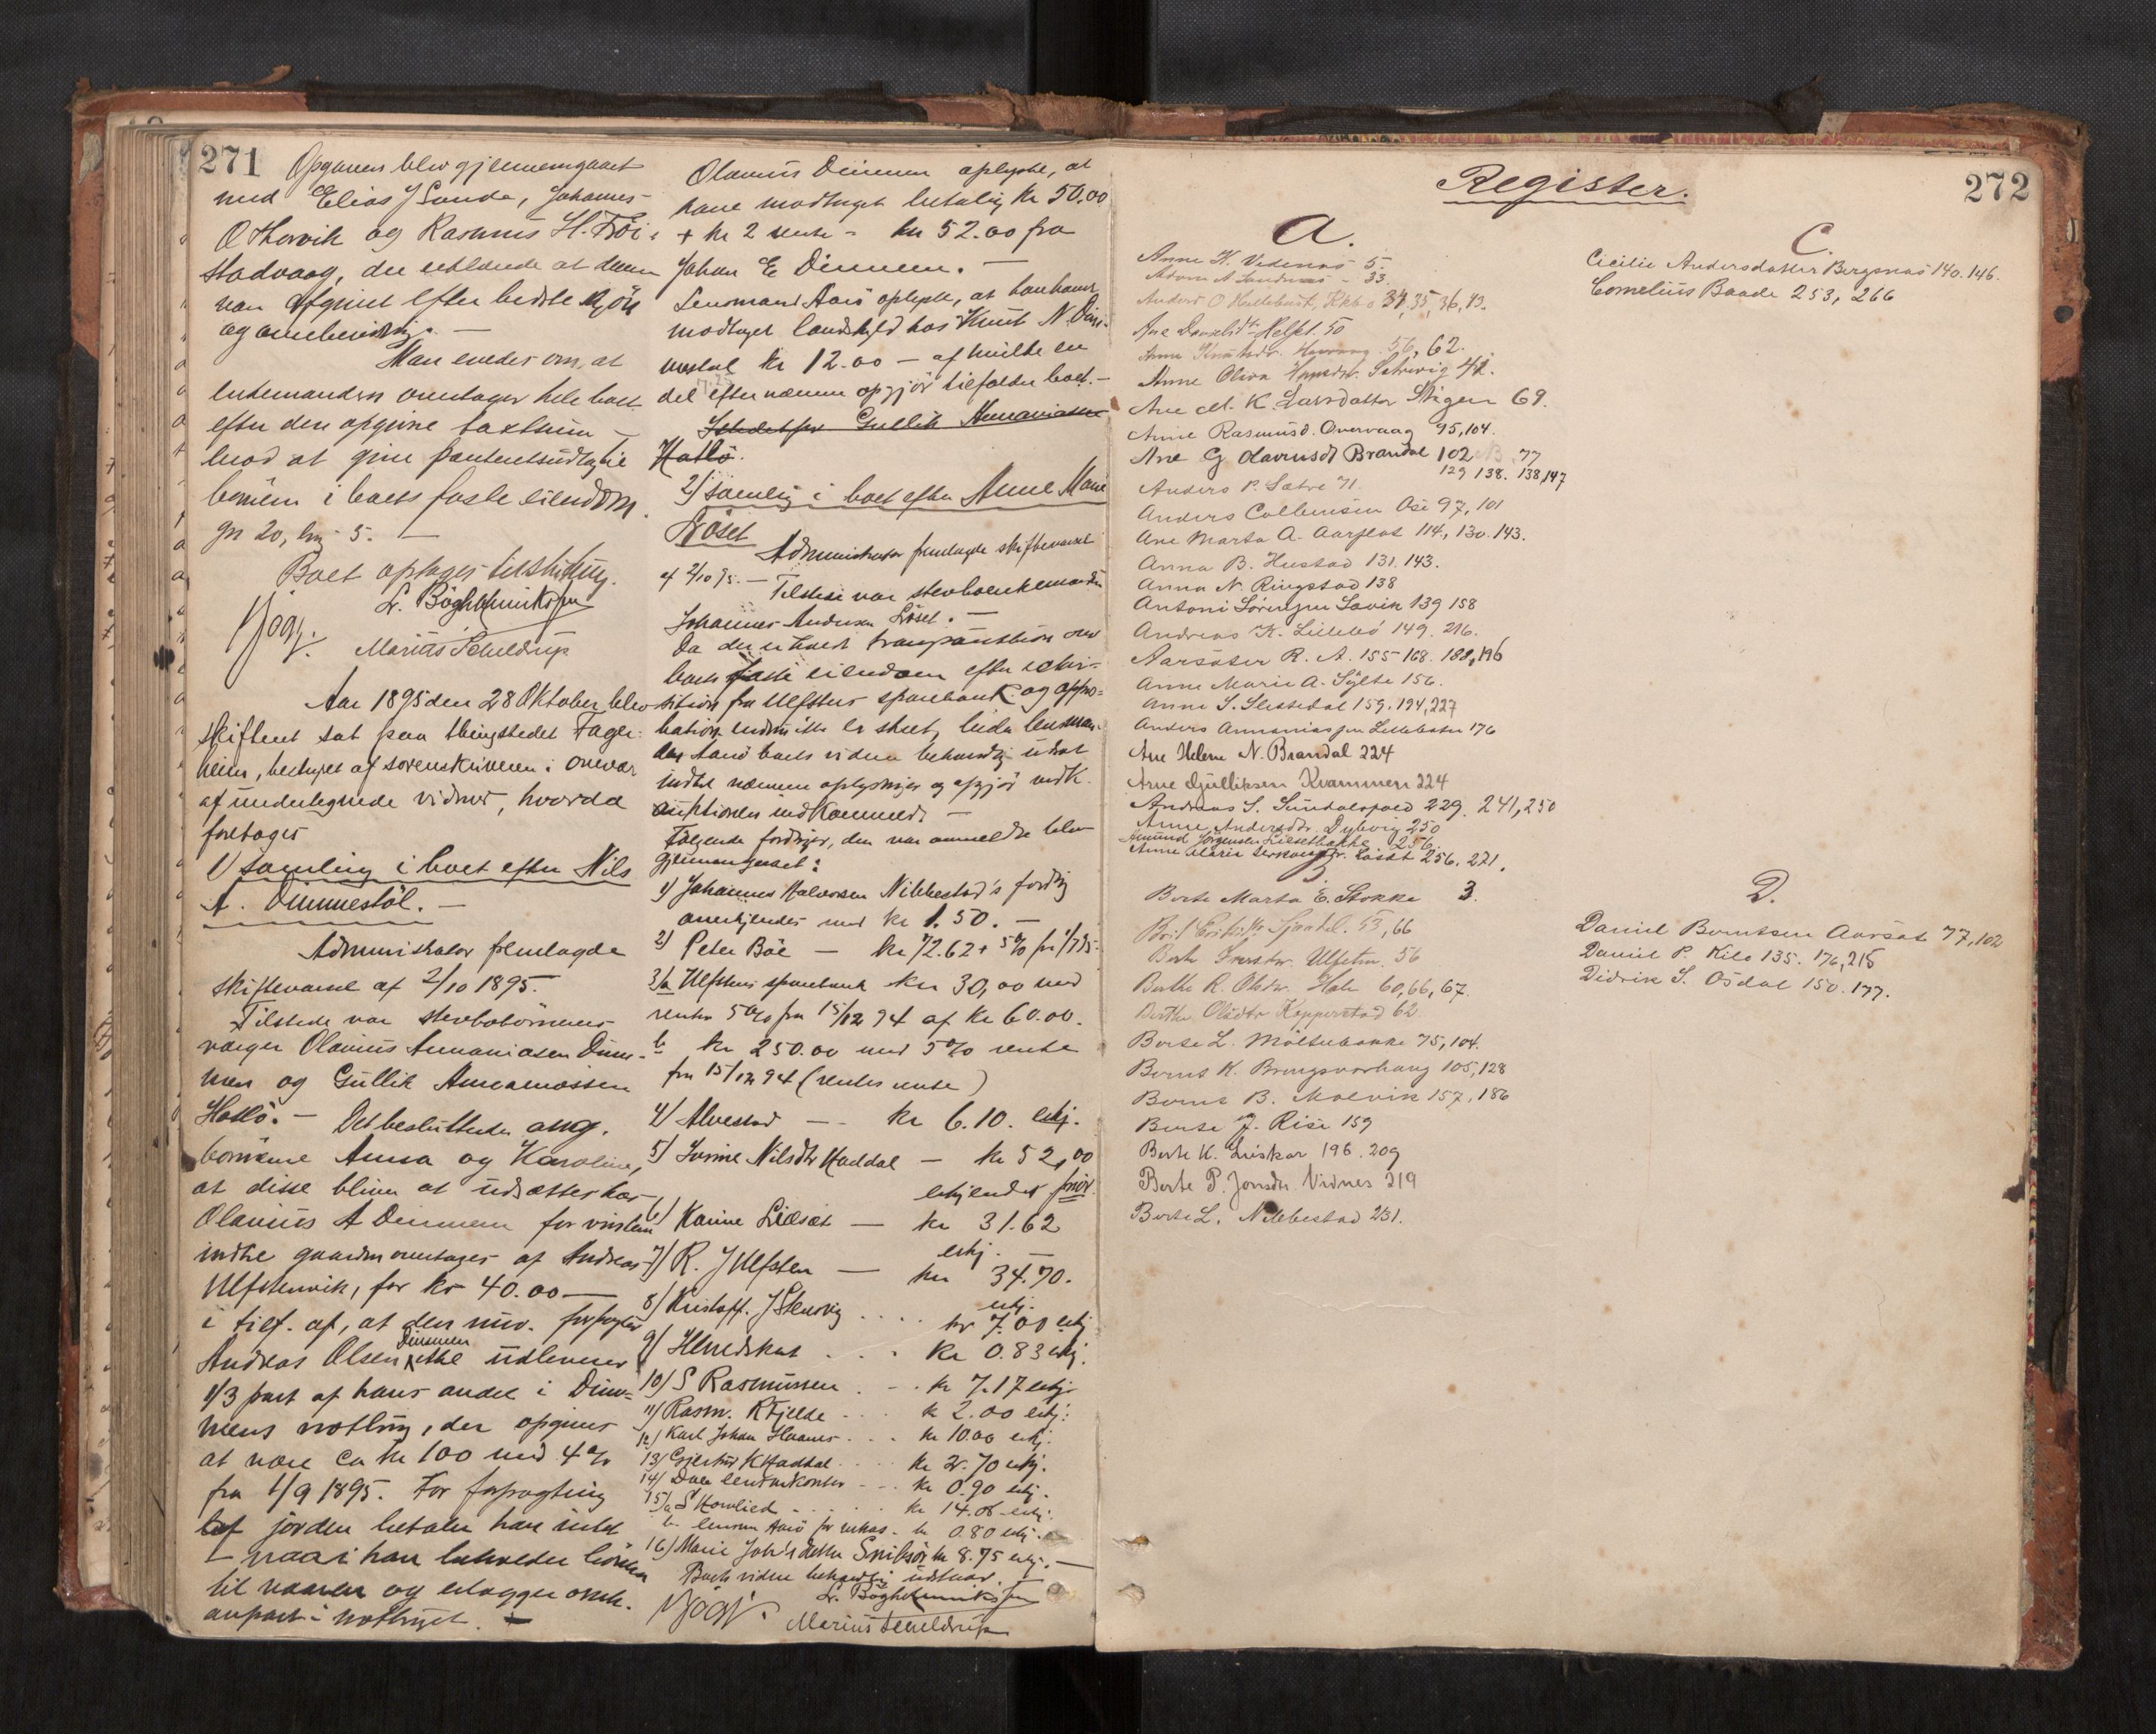 271
Opgaven blev gjennemgaaet
med Elias J Sande, Johannes
O Thorvik og Rasmus H. Frøi
stadvaag, der erklærede at denne
var afgivet efter bedste skjøn
og overbevisning. —
Man enedes om, at
enkemanden overtager hele boet
efter den opgivne taxtsum —
mod at give panteudlæg til
børnene i boets faste eiendom
gn 20, bn 5. —
Boet optages til skiftning.
L. Bøgh Henrikssen
Marius Scheldrup
Aar 1895 den 28 Oktober blev
skifteret sat paa thingstedet Fager-
heim, bestyret af sorenskriveren i overvær
af undertegnede vidner, hvorda
foretoges
1) Samling i boet efter Nils
A. Dimmestøl. —
Administrator fremlagde
skiftevarsel af 2/10 1895.
Tilstede var sterbobørnenes
værger Olanus Ananiasen Dim-
men og Gullik Ananiassen
Hatlø. — Det besluttedes ang.
børnene Anna og Karoline,
at disse bliver at udsættes hos
Olanus A Dimmen for vinteren
indtil gaarden overtages af Andreas
Ulfstenvik, for kr 40.00 —
i tilf. af, at den nuv. forpagter
Andreas Olsen Dimmen ikke udleverer
1/3 part af hans andel i Dim-
mens notbrug, der opgives
at være ca kr 100 med 4%
fra 1/9 1895. For forpagtning
af jorden betaler han intet
— naar han beholder børnene
til vaaren og erlægger omh.
anpart i notbruget. —
Olanus Dimmen oplyste, at
have modtaget betaling kr 50.00
+ kr 2 rente = kr 52.00 fra
Johan E Dimmen. —
Lensmand Aarø oplyste, at han havde
modtaget landskyld hos Knut N. Dim-
mestøl kr 12.00 — af hvilke en
del efter nærmere opgjør tilfalder boet. —
Istedetfor Gullik Ananiassen
Hatlø.
2) Samling i boet efter Anne Marie
Løset
Administrator fremlagde skiftevarsel
af 2/10 95. — Tilstede var sterboenkemanden
Johannes Andersen Løset. —
Da der er holdt tvangsauktion over
boets faste eiendom efter rekvi-
sition fra Ulfstens sparebank og appro-
bation endnu ikke er skeet,
boets videre behandling udsat
indtil nærmere oplysninger og opgjør vedk.
auktionen indkommer. —
Følgende fordringer, der var anmeldte blev
gjennemgaaet:
1) Johannes Halvorsen Nibbestad's fordring
anerkjendes med kr 1.50. —
2) Peter Bøe — kr 72.62 + 5% fra 1/7 95
3) a Ulfstens sparebank kr 30,00 med
renter 5% fra 15/12 94 af kr 60.00.
b kr 250.00 med 5% rente
fra 15/12 94 (rentes rente)
4) Alvestad — kr 6.10. erkj.
5) Nilsdtr Haddal — kr 52,00
erkjendes
6) Karine Lidsæt — kr 31.62
erkj. —
7) R. J Ulfsten — kr 34.70.
erkj.
8) Kristoff. J Stensvig .... kr 7.00 erkj
9) Herredskas ... kr 0.83 erkj.
10) S Rasmussen ... kr 7.17 erkj.
11) Rasm. R Fjelde ... kr 2.00 erkj.
12) Karl Johan ... kr 10.00 erkj.
13) K Haddal ... kr 2.70 erkj.
14) ... kr 0.90 erkj.
15) a S Hovlied ... kr 14.06 erkj.
b. lensm Aarø for - kr 0.80 erkj.
16) Marie kr 8.75 erkj. —
Boets videre behandling udstaar.
L. Bøgh Henrikssen
Marius Scheldrup
Register.
272
A.
Anne K. Vedenæs 5.
Adam A Sandnæs - 33.
Anders O 34, 35, 36, 43.
Ane Danielsdtr Helset. 50
Anne Knutsdr. 56, 62.
Anne Oliva Sætrevig 42.
Ane M. K. Larsdatter Stigen 69.
Anne Rasmusd. Overvaag 95, 104.
Ane G Olavusdt Brandal 102 77
129 138. 138, 147
Anders P. Sætre 71.
Anders Colbensen Ose 97, 101
Ane Marta A. Aarflot 114, 130. 143.
Anna B. Hustad 131. 143.
Anna N. Ringstad 138
Antoni Sørensen Savik 139 158
Andreas K. Lillebø 149. 216.
Aarsæter R. A. 155 168. 188, 196
Anne Marie A. Sylte 156.
Anne S. Slettedal 159. 194, 227
Anders Annaniassen Lillebøe 176
Ane Helene N. Brandal 224
Arne Gulliksen Kvammen 224
Andreas S. Sundalsfoed 229. 241, 250
Anne Andersdtr. Dybvig 250
Amund Jørgensen Liesetbakke 256.
Anne Marie Løset 256. 271.
B.
Berte Marta E. Stokke 3.
Brit Sjaadal. 53, 66
Berte Iversdr. Ulfsten. 56
Berthe R. Olsdr. Hole 60, 66, 67.
Berthe Olsdtr Kopperstad 62.
Berte L. Moltubakke 75, 104.
Bernt K. Bringsvorhaug 105, 128
Bernt B. Molvik 157, 186
Berte J. Rise 159
Berte K. Liskar 196. 209
Berte P. Jonsdr. Vidnes 219
Berte L. Nibbestad 231.
C.
Cicilie Andersdatter Bergsnæs 140. 146.
Cornelius Baade 253, 266
D.
Daniel Berntsen Aarsæt 77, 102
Daniel P. Kile 135. 176, 215
Didrik S. Osdal 150. 177.